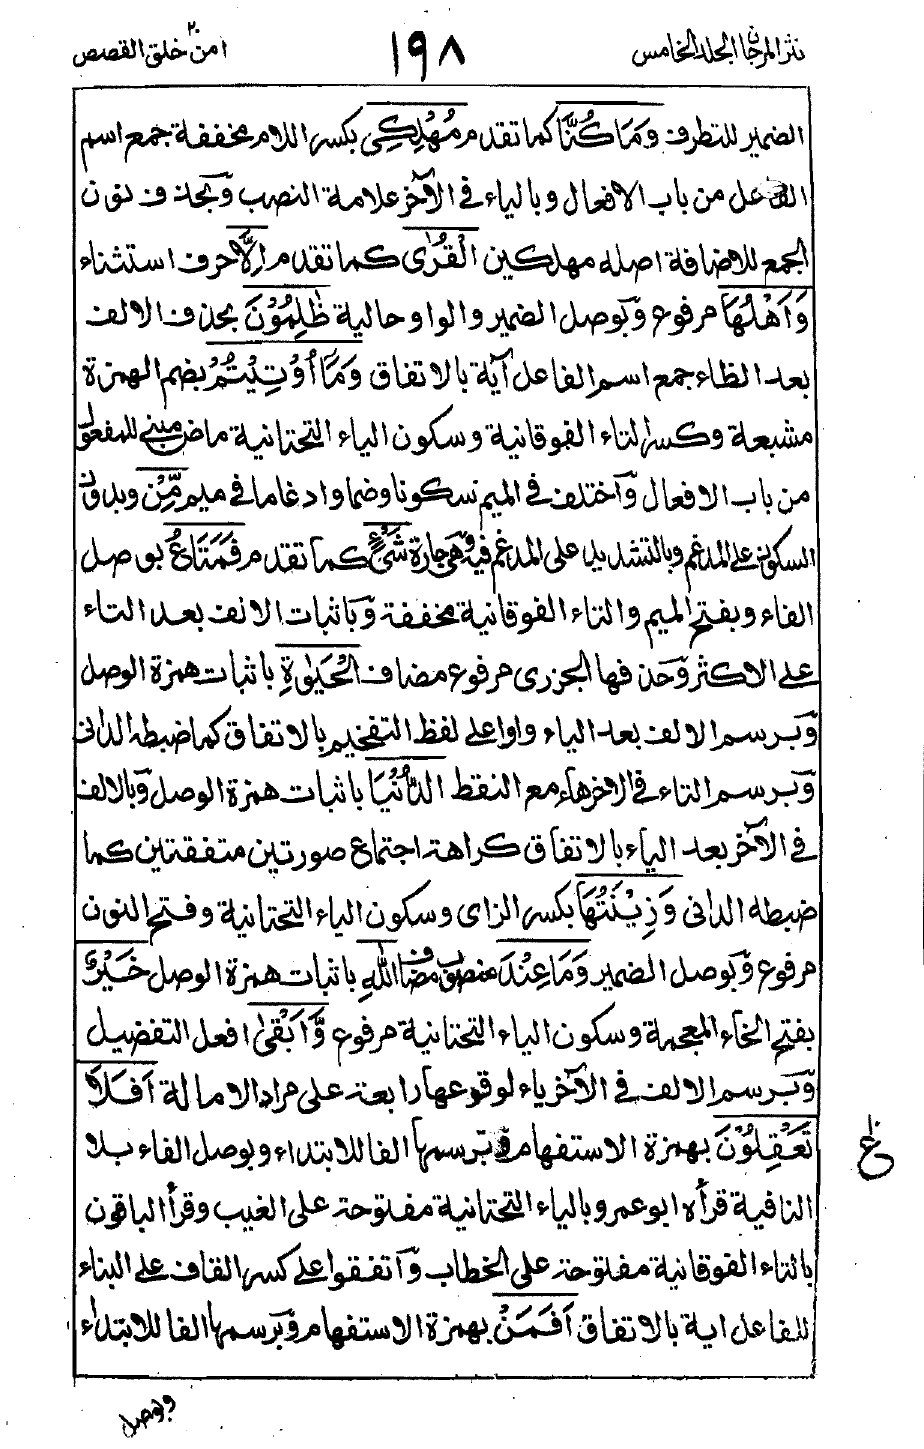 نثر المرجان المجلد الخامس
١٩٨
امن خلق ٢٠ القصص
الضمير للتطرف وَمَا كُنَّا كما تقدم مُهْلِكِي بكسر اللام مخففة جمع اسم
الفاعل من باب الافعال وبالياء في الآخر علامة النصب وبحذف نون
الجمع للاضافة اصله مهلكين الْقُرٰى كما تقدم اِلَّا حرف استثناء
وَاَهْلُهَا مرفوع وبوصل الضمير والواو حالية ظٰلِمُوْنَ بحذف الالف
بعد الظاء جمع اسم الفاعل آية بالاتفاق وَمَا اُوْتِيْتُمْ بضم الهمزة
مشبعة وكسر التاء الفوقانية وسكون الياء التحتانية ماض مبني للمفعول
من باب الافعال واختلف في الميم سكونا وضما وادغاما في ميم مِّنْ وبدون
السكون على المدغم وبالتشديد على المدغم فيه وهي جارة شَيْءٍ كما تقدم فَمَتَاعُ بوصل
الفاء وبفتح الميم والتاء الفوقانية مخففة وباثبات الالف بعد التاء
على الاكثر وحذفها الجزري مرفوع مضاف الْحَيٰوةِ باثبات همزة الوصل
وبرسم الالف بعد الياء واوا على لفظ التفخيم بالاتفاق كما ضبطه الداني
وبرسم التاء في الآخر هاء مع النقط الدُّنْيَا باثبات همزة الوصل وبالالف
في الآخر بعد الياء بالاتفاق كراهة اجتماع صورتين متفقتين كما
ضبطه الداني وَزِيْنَتُهَا بكسر الزاى وسكون الياء التحتانية وفتح النون
مرفوع وبوصل الضمير وَمَا عِنْدَ منصوب مضاف اللّٰهِ باثبات همزة الوصل خَيْرٌ
بفتح الخاء المعجمة وسكون الياء التحتانية مرفوع وَّاَبْقٰى افعل التفضيل
وبرسم الالف في الآخر ياء لوقوعها رابعة على مراد الامالة اَفَلَا
تَعْقِلُوْنَ بهمزة الاستفهام وبرسمها الفا للابتداء وبوصل الفاء بلا
النافية قرأه ابو عمرو بالياء التحتانية مفتوحة على الغيب وقرأ الباقون
بالتاء الفوقانية مفتوحة على الخطاب واتفقوا على كسر القاف على البناء
للفاعل اية بالاتفاق اَفَمَنْ بهمزة الاستفهام وبرسمها الفا للابتداء
وبوصل